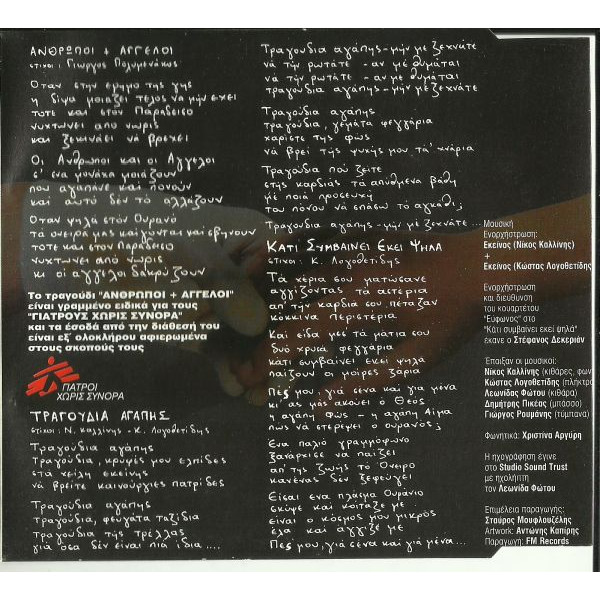 ΑΝΘΡΩΠΟΙ + ΑΓΓΕΛΟΙ
ΣΤΙΧΟΙ : Γιώργος Πολυμενάκος
Όταν στην έρημο της γης
η δίψα μοιάζει τέλος να μην έχει
τότε και στον Παράδεισο
νυχτώνει από νωρίς
και ξεκινάει να βρέχει
Οι Άνθρωποι και οι Άγγελοι
σ' ένα μονάχα μοιάζουν
που αγαπάνε και πονούν
και αυτό δεν το αλλάζουν
Όταν ψηλά στον Ουρανό
τα όνειρά μας καίγονται και σβήνουν
τότε και στον Παράδεισο
νυχτώνει από νωρίς
κι οι άγγελοι δακρύζουν
Το τραγούδι "ΑΝΘΡΩΠΟΙ + ΑΓΓΕΛΟΙ"
είναι γραμμένο ειδικά για τους
"ΓΙΑΤΡΟΥΣ ΧΩΡΙΣ ΣΥΝΟΡΑ"
και τα έσοδά από την διάθεσή του
είναι εξ' ολοκλήρου αφιερωμένα
στους σκοπούς τους
ΓΙΑΤΡΟΙ
ΧΩΡΙΣ ΣΥΝΟΡΑ
ΤΡΑΓΟΥΔΙΑ ΑΓΑΠΗΣ
ΣΤΙΧΟΙ : Ν. Καλλίνης - Κ. Λογοθετίδης
Τραγούδια αγάπης
Τραγούδια, κρυφές μου ελπίδες
στα χείλη εκείνης
να βρείτε καινούργιες πατρίδες
Τραγούδια αγάπης
Τραγούδια, φευγάτα ταξίδια
Τραγούδια της τρέλλας
για όσα δεν είναι πιά ίδια....
Τραγούδια αγάπης - μήν με ξεχνάτε
νά τήν ρωτάτε - αν μέ θυμάται
νά τήν ρωτάτε - αν μέ θυμάται
τραγούδια αγάπης - μήν με ξεχνάτε
Τραγούδια αγάπης
Τραγούδια, γεμάτα φεγγάρια
χαρίστε της φώς
νά βρεί τής ψυχής μου τά χνάρια
Τραγούδια πού ζείτε
στής καρδιάς τα απύθμενα βάθη
μέ ποιά προσευχή
του πόνου νά σπάσω τό αγκάθι;
Τραγούδια αγάπης - μήν με ξεχνάτε...
ΚΑΤΙ ΣΥΜΒΑΙΝΕΙ ΕΚΕΙ ΨΗΛΑ
ΣΤΙΧΟΙ : Κ. Λογοθετίδης
Τα χέρια σου ματώσανε
αγγίζοντας τα αστέρια
απ' την καρδιά σου πέταξαν
κόκκινα περιστέρια
Και είδα μες τα μάτια σου
δυό χρυσά φεγγάρια
κάτι συμβαίνει εκεί ψηλά
παίζουν οι μοίρες ζάρια
Πές μου, γιά σένα και γιά μένα
κι ας μάς ακούει ο Θεός
η αγάπη Φως - η αγάπη Αίμα
πως νά στερέψει ο ουρανός;
Ένα παλιό γραμμόφωνο
ξανάρχισε να παίζει
απ' της ζωής το Όνειρο
κανένας δεν ξεφεύγει
Είσαι ένα πλάσμα Ουράνιο
σκύψε και κοίταξέ με
είναι ο κόσμος μου μικρός
έλα και άγγιξέ με
Πες μου, γιά σένα καί γιά μένα...
Μουσική
Ενορχήστρωση:
Εκείνος (Νίκος Καλλίνης)
+
Εκείνος (Κώστας Λογοθετίδης
Ενορχήστρωση
και διεύθυνση
του κουαρτέτου
"Εύφωνος" στο
"Κάτι συμβαίνει εκεί ψηλά"
έκανε ο Στέφανος Δεκεριάν
Έπαιξαν οι μουσικοί:
Νίκος Καλλίνης (κιθάρες, φων
Κώστας Λογοθετίδης (πλήκτρα
Λεωνίδας Φώτου (κιθάρα)
Δημήτρης Πικέας (μπάσσο)
Γιώργος Ρουμάνης (τύμπανα)
Φωνητικά: Χριστίνα Αργύρη
Η ηχογράφηση έγινε
στο Studio Sound Trust
με ηχολήπτη
τον Λεωνίδα Φώτου
Επιμέλεια παραγωγής:
Σταύρος Μουφλουζέλης
Artwork: Αντώνης Καπίρης
Παραγωγή: FM Records